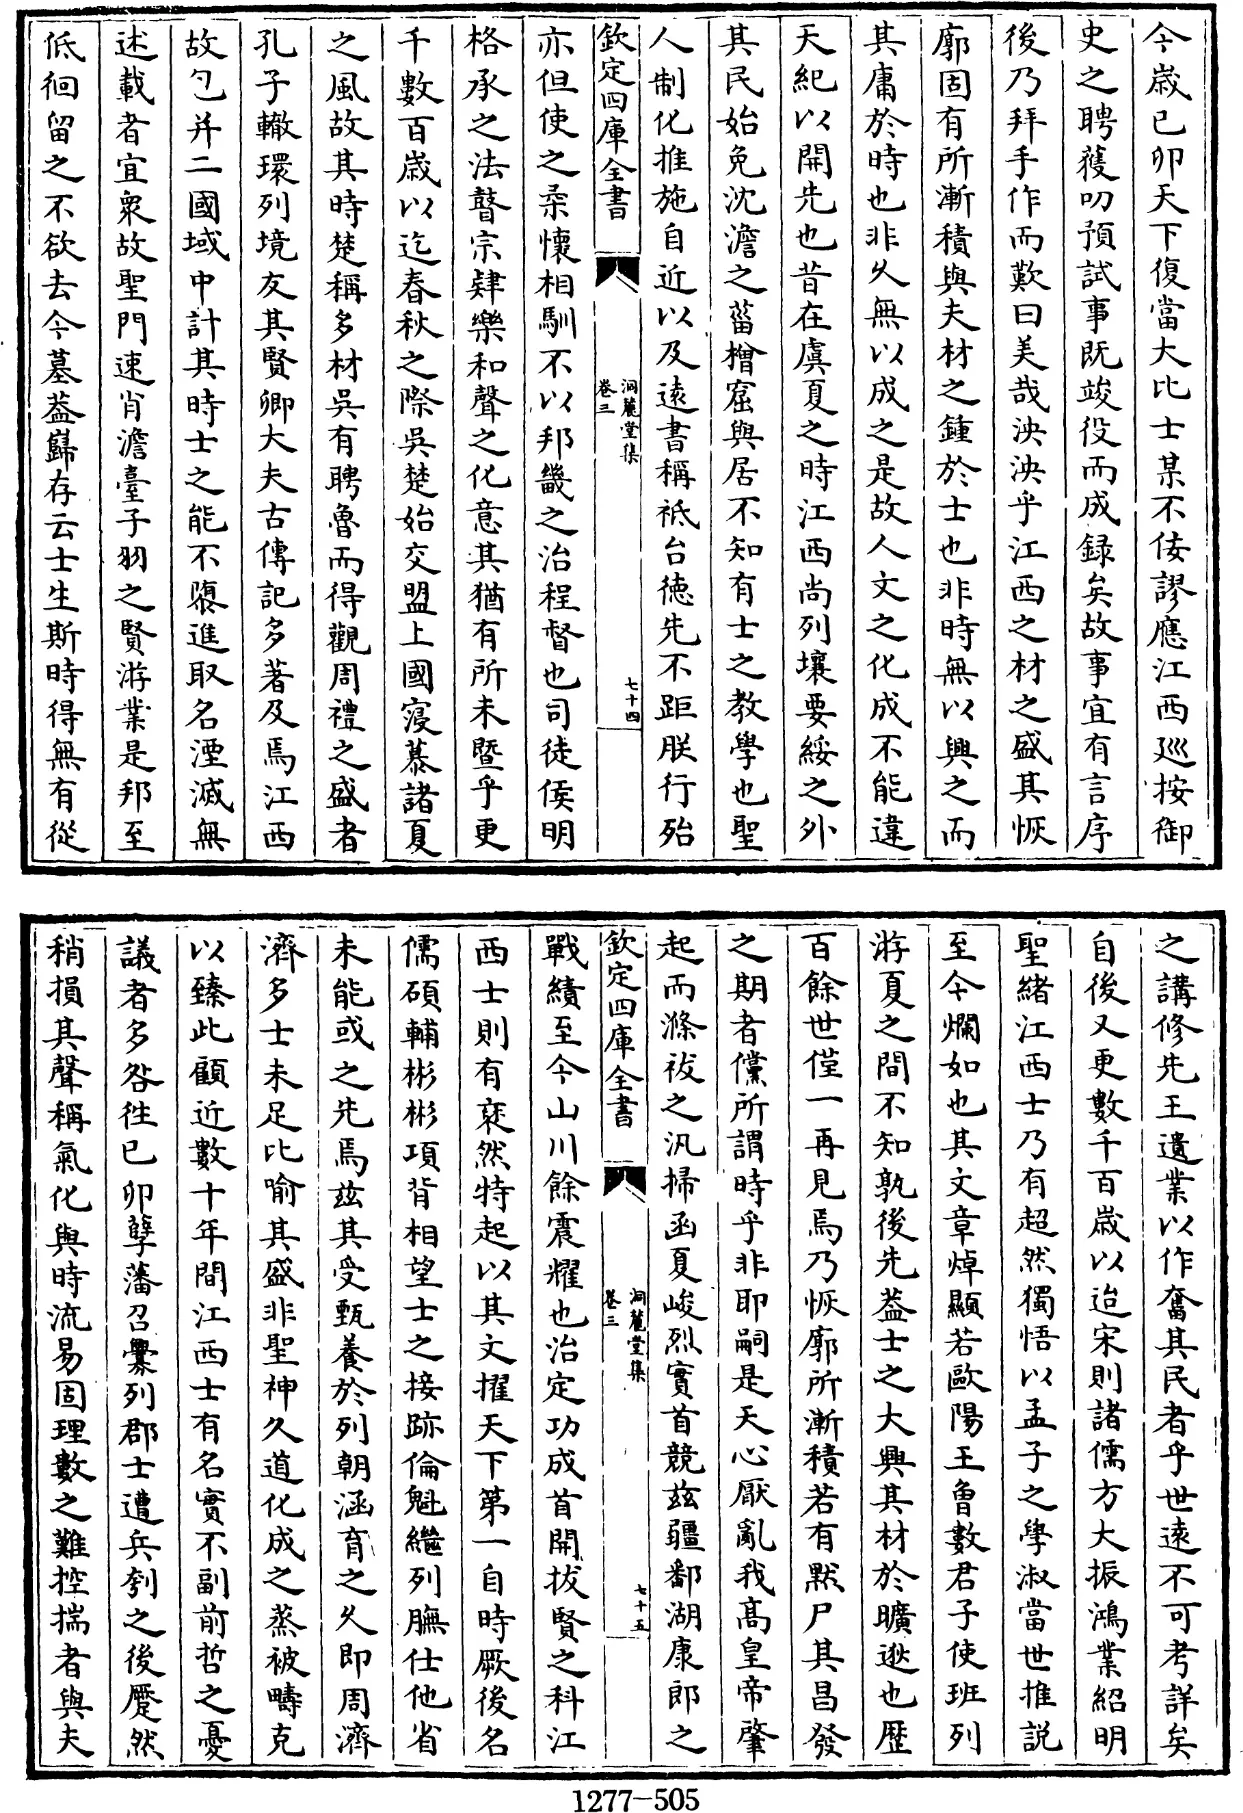 今歲已卯天下復當大比士某不佞謬應江西廵按御
史之聘蒦叨預試事既竣役而成録矣故事宜有言序
後乃拜手作而歎曰美哉泱泱乎江西之材之盛其恢
廓固有所漸積與夫材之鍾於士也非時無以興之而
其庸於時也非久無以成之是故人文之化成不能違
天紀以開先也昔在虞夏之時江西尚列壤要綏之外
其民始免沈澹之菑橧窟與居不知有士之教學也聖
人制化推施自近以及遠書稱祇台徳先不距朕行殆
欽定四庫全書
洞麓堂集
卷三
七十四
亦但使之柔懷相馴不以邦畿之治程督也司徒侯明
格承之法瞽宗肄樂和聲之化意其猶有所未曁乎更
千數百歲以迄春秋之際吳楚始交盟上國寖慕諸夏
之風故其時楚稱多材吳有聘魯而得觀周禮之盛者
孔子轍環列境友其賢卿大夫古傳記多著及焉江西
故勹并二國域中計其時士之能不隳進取名湮滅無
述載者宜衆故聖門速肖澹臺子羽之賢游業是邦至
低徊留之不欲去今墓葢巋存云士生斯時得無有從
之講修先王遺業以作奮其民者乎世逺不可考詳矣
自後又更數千百歲以迨宋則諸儒方大振鴻業紹明
聖緒江西士乃有超然獨悟以孟子之學淑當世推説
至今爛如也其文章焯顯若歐陽王曾數君子使班列
游夏之間不知孰後先葢士之大興其材於曠逖也歴
百餘世僅一再見焉乃恢廓所漸積若有黙尸其昌發
之期者儻所謂時乎非耶嗣是天心厭亂我髙皇帝肇
起而滌祓之汎掃函夏峻烈實首競兹疆鄱湖康郎之
欽定四庫全書
洞麓堂集
卷三
七十五
戰績至今山川餘震耀也治定功成首開拔賢之科江
西士則有裒然特起以其文擢天下第一自時厥後名
儒碩輔彬彬項背相望士之接跡倫魁繼列膴仕他省
未能或之先焉兹其受甄養於列朝涵育之久即周濟
濟多士未足比喻其盛非聖神久道化成之蒸被疇克
以臻此顧近數十年間江西士有名實不副前哲之憂
議者多咎徃已卯孽藩召釁列郡士遭兵刳之後蹷然
稍損其聲稱氣化與時流易固理數之難控揣者與夫
1277—505